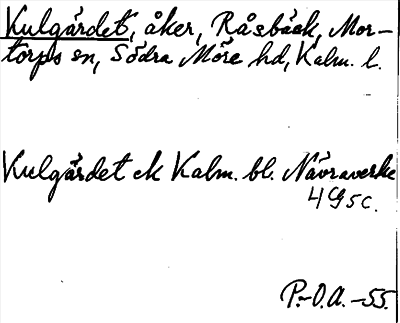 Kulgärdet, åker, Råsbäck, Mor-
torps sn, Södra Möre hd, Kalm. l.
Kulgärdet ek Kalm. bl. Nävraverke
4G5c.
P.-O.A. -55.